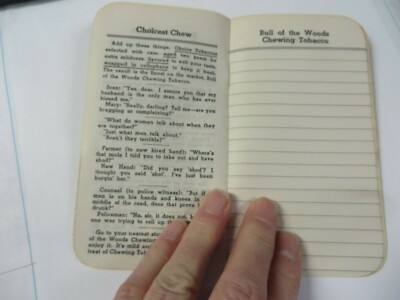 Choicest Chew
Add up these things. Choice Tobaccos
selected with care, aged two years for
extra mildness. Flavored to suit your taste,
wrapped in cellophane to keep it fresh.
The result is the finest on the market. Bull
of the Woods Chewing Tobacco.
Sue: "Yes, dear. I assure you that my
husband is the only man who has ever
kissed me."
Mary: "Really, darling? Tell me—are you
bragging or complaining?"
"What do women talk about when they
are together?"
"Just what men talk about."
"Aren't they terrible?"
Farmer (to new hired hand): "Where's
that mule I told you to take out and have
shod?"
New Hand: "Did you say 'shod'? I
thought you said 'shot'. I've just been
buryin' her."
Counsel (to police witness): "But if a
man is on his hands and knees in
middle of the road, does that prove
drunk?"
Policeman: "No, sir, it does not, b
one was trying to roll up th
Go to your nearest sto
of the Woods Chewing
enjoy it. It's mild a
treat of Chewing Toba
Bull of the Woods
Chewing Tobacco